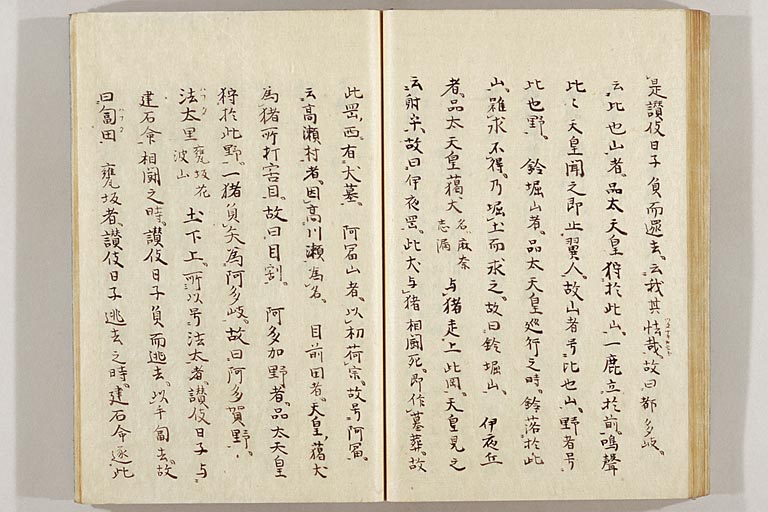 是讃伎日子負而還去。云我其怯哉。故曰都多岐。
云比也山者。品太天皇狩於此山、一鹿立於前鳴聲
比々。天皇聞之即止翼人。故山者号比也山、野者号
比也野。 鈴堀山者。品太天皇巡行之時、鈴落於此
山。雖求不得。乃堀土而求之。故曰鈴堀山。 伊夜丘
者。品太天皇獦犬 名麻奈志漏 与猪走上此岡。天皇見之
云射乎。故曰伊夜罡。此犬与猪相闘死。即作墓葬。故
此罡、西有犬墓。 阿冨山者。以朸荷宍。故号阿冨。
云高瀬村者。因高川瀬為名。 目前田者。天皇獦犬
為猪所打害目。故曰目割。 阿多加野者。品太天皇
狩於此野。一猪負矢為阿多岐。故曰阿多賀野。
法太里 甕坂花波山 土下上。所以号法太者。讃伎日子与
建石命相闘之時。讃伎日子負而逃去。以手匐去。故
曰匐田 甕坂者。讃伎日子逃去之時。建石命逐此